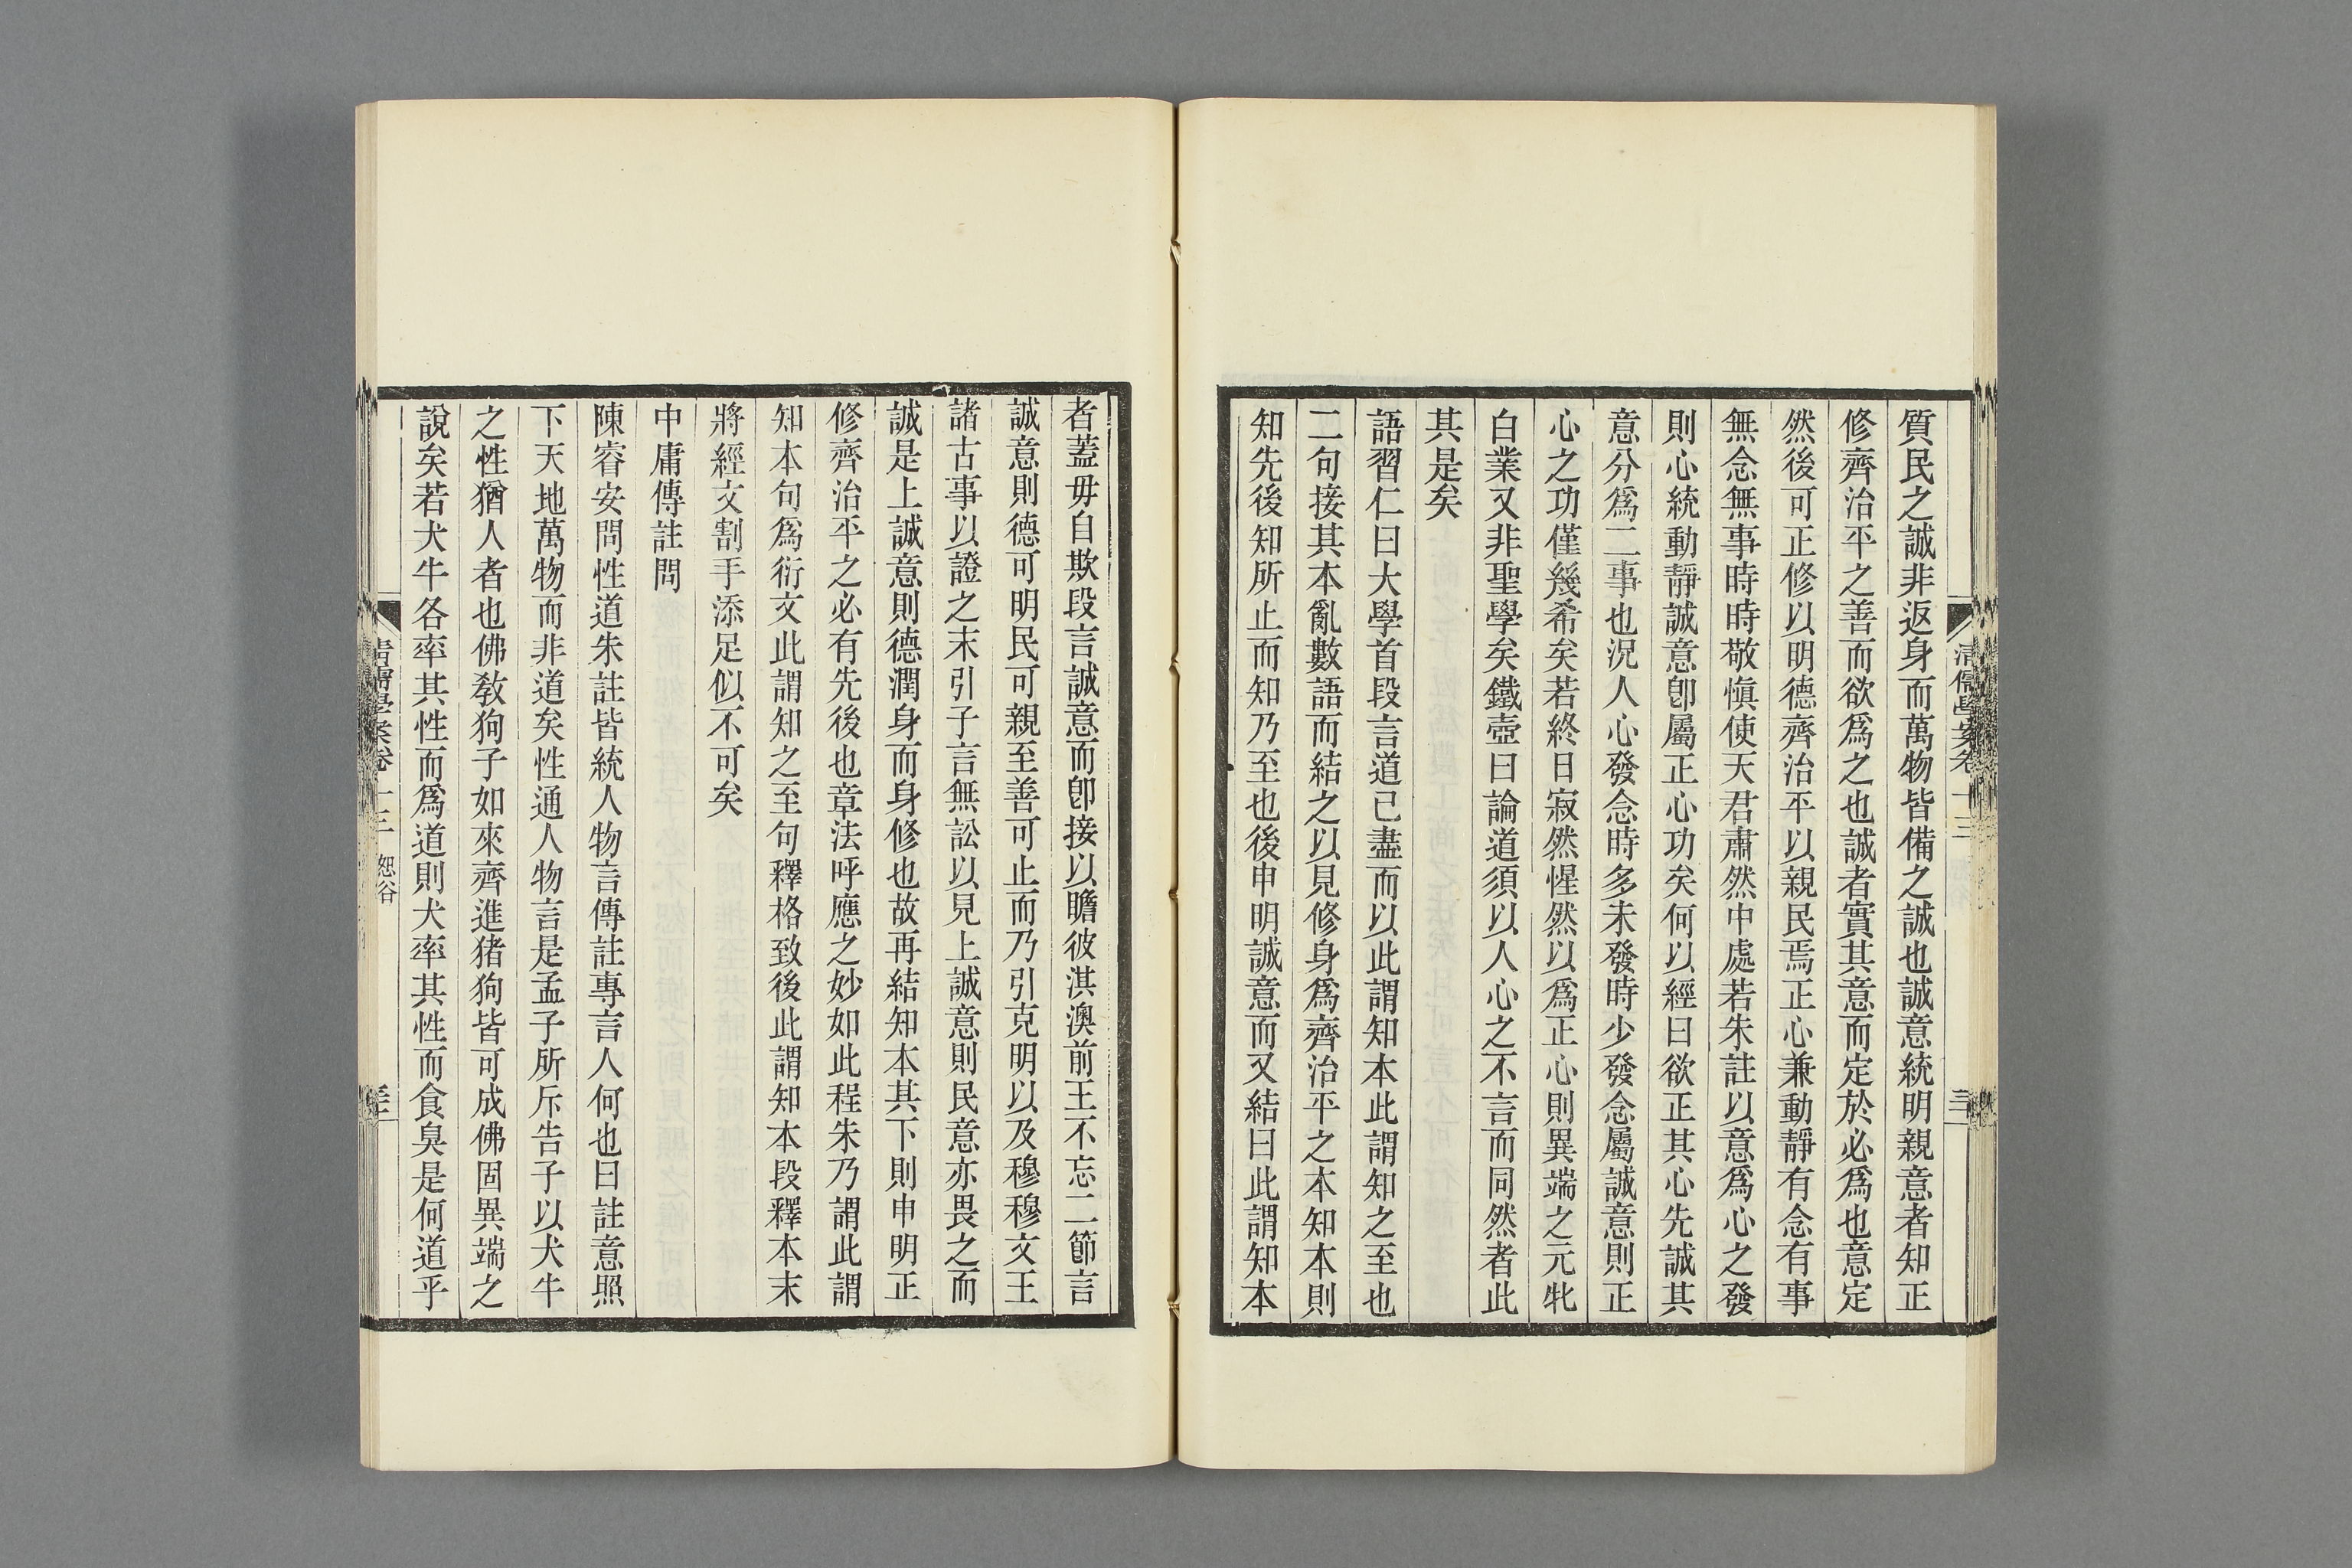 質民之誠非返身而萬物皆備之誠也誠意統明親意者知正
修齊治平之善而欲爲之也誠者實其意而定於必爲也意定
然後可正修以明德齊治平以親民焉正心兼動靜有念有事
無念無事時時敬愼使天君肅然中處若朱註以意爲心之發
則心統動靜誠意卽屬正心功矣何以經曰欲正其心先誠其
意分爲二事也況人心發念時多未發時少發念屬誠意則正
心之功僅幾希矣若終日寂然惺然以爲正心則異端之元牝
白業又非聖學矣鐵壺曰論道須以人心之不言而同然者此
其是矣
語習仁曰大學首段言道已盡而以此謂知本此謂知之至也
二句接其本亂數語而結之以見修身爲齊治平之本知本則
知先後知所止而知乃至也後申明誠意而又結曰此謂知本
者蓋毋自欺段言誠意而卽接以瞻彼淇澳前王不忘二節言
誠意則德可明民可親至善可止而乃引克明以及穆穆文王
諸古事以證之末引子言無訟以見上誠意則民意亦畏之而
誠是上誠意則德潤身而身修也故再結知本其下則申明正
修齊治平之必有先後也章法呼應之妙如此程朱乃謂此謂
知本句爲衍文此謂知之至句釋格致後此謂知本段釋本末
將經文割手添足似不可矣
中庸傳註問
陳睿安問性道朱註皆統人物言傳註專言人何也曰註意照
下天地萬物而非道矣性通人物言是孟子所斥告子以犬牛
之性猶人者也佛敎狗子如來齊進猪狗皆可成佛固異端之
說矣若犬牛各率其性而爲道則犬率其性而食臭是何道乎
清儒學案卷十三 恕谷